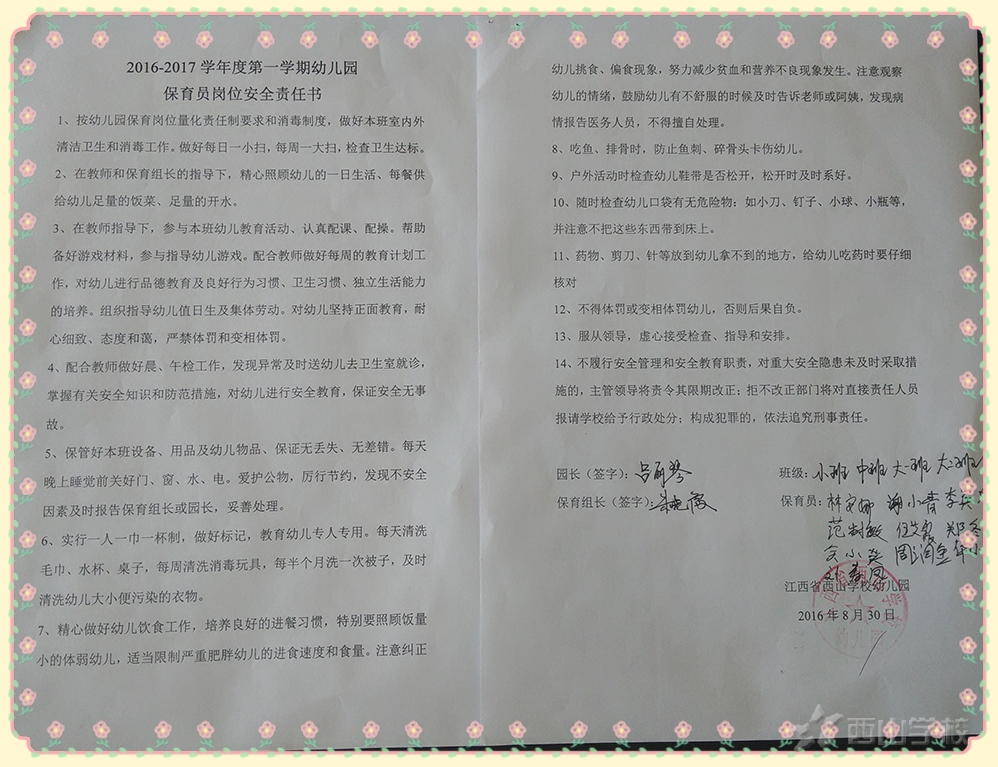 2016-2017 学年度第一学期幼儿园
保育员岗位安全责任书
1、按幼儿园保育岗位量化责任制要求和消毒制度，做好本班室内外
清洁卫生和消毒工作。做好每日一小扫，每周一大扫，检查卫生达标。
2、在教师和保育组长的指导下，精心照顾幼儿的一日生活、每餐供
给幼儿足量的饭菜、足量的开水。
3、在教师指导下，参与本班幼儿教育活动、认真配课、配操。帮助
备好游戏材料，参与指导幼儿游戏。配合教师做好每周的教育计划工
作，对幼儿进行品德教育及良好行为习惯、卫生习惯、独立生活能力
的培养。组织指导幼儿值日生及集体劳动。对幼儿坚持正面教育，耐
心细致、态度和蔼，严禁体罚和变相体罚。
4、配合教师做好晨、午检工作，发现异常及时送幼儿去卫生室就诊，
掌握有关安全知识和防范措施，对幼儿进行安全教育，保证安全无事
故。
5、保管好本班设备、用品及幼儿物品、保证无丢失、无差错。每天
晚上睡觉前关好门、窗、水、电。爱护公物，厉行节约，发现不安全
因素及时报告保育组长或园长，妥善处理。
6、实行一人一巾一杯制，做好标记，教育幼儿专人专用。每天清洗
毛巾、水杯、桌子，每周清洗消毒玩具，每半个月洗一次被子，及时
清洗幼儿大小便污染的衣物。
7、精心做好幼儿饮食工作，培养良好的进餐习惯，特别要照顾饭量
小的体弱幼儿，适当限制严重肥胖幼儿的进食速度和食量。注意纠正
幼儿挑食、偏食现象，努力减少贫血和营养不良现象发生。注意观察
幼儿的情绪，鼓励幼儿有不舒服的时候及时告诉老师或阿姨，发现病
情报告医务人员，不得擅自处理。
8、吃鱼、排骨时，防止鱼刺、碎骨头卡伤幼儿。
9、户外活动时检查幼儿鞋带是否松开，松开时及时系好。
10、随时检查幼儿口袋有无危险物：如小刀、钉子、小球、小瓶等，
并注意不把这些东西带到床上。
11、药物、剪刀、针等放到幼儿拿不到的地方，给幼儿吃药时要仔细
核对
12、不得体罚或变相体罚幼儿，否则后果自负。
13、服从领导，虚心接受检查、指导和安排。
14、不履行安全管理和安全教育职责，对重大安全隐患未及时采取措
施的，主管领导将责令其限期改正；拒不改正部门将对直接责任人员
报请学校给予行政处分；构成犯罪的，依法追究刑事责任。
园长（签字）： 班级：小班 中班 大一班 大二班
保育组长（签字）： 保育员： 谢小青
江西省西山学校幼儿园
2016 年 8 月 30 日
幼儿园
西山学校